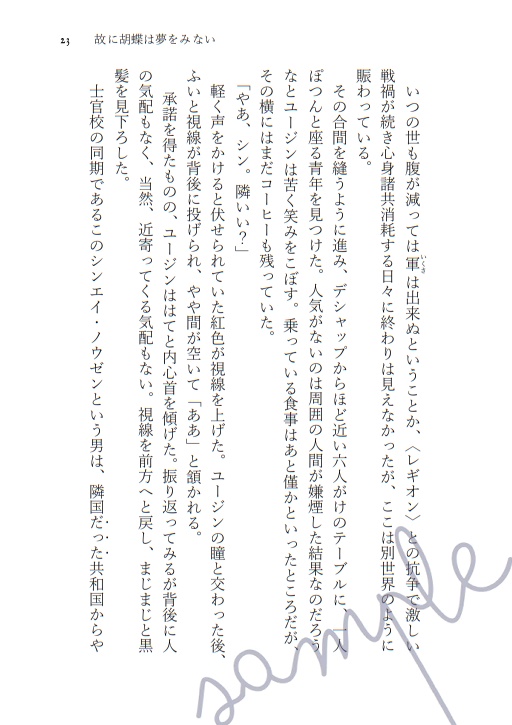 23 故に胡蝶は夢をみない
いつの世も腹が減っては軍は出来ぬということか、〈レギオン〉との抗争で激しい
いくさ
戦禍が続き心身諸共消耗する日々に終わりは見えなかったが、ここは別世界のように
賑わっている。
その合間を縫うように進み、デシャップからほど近い六人がけのテーブルに、一人
ぽつんと座る青年を見つけた。人気がないのは周囲の人間が嫌煙した結果なのだろう
なとユージンは苦く笑みをこぼす。乗っている食事はあと僅かといったところだが、
その横にはまだコーヒーも残っていた。
「やあ、シン。隣いい？」
軽く声をかけると伏せられていた紅色が視線を上げた。ユージンの瞳と交わった後、
ふいと視線が背後に投げられ、やや間が空いて「ああ」と頷かれる。
承諾を得たものの、ユージンははてと内心首を傾げた。振り返ってみるが背後に人
の気配もなく、当然、近寄ってくる気配もない。視線を前方へと戻し、まじまじと黒
髪を見下ろした。
士官校の同期であるこのシンエイ・ノウゼンという男は、隣国だった共和国からや
sample